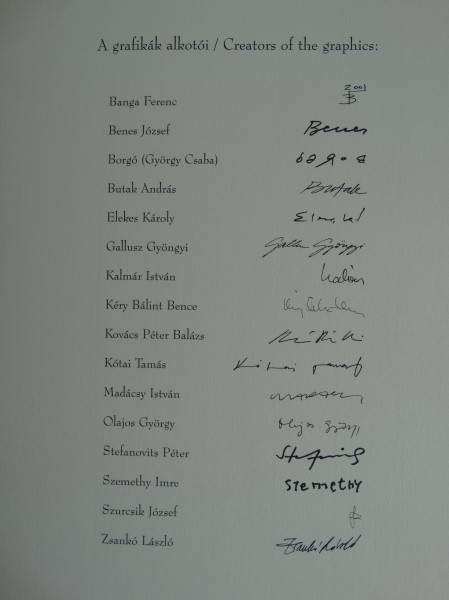 A grafikák alkotói / Creators of the graphics:
2001
Banga Ferenc B
Benes József Benes
Borgó (György Csaba)
Butak András Butak
Elekes Károly
Gallusz Gyöngyi Gallusz Gyöngyi
Kalmár István
Kéry Bálint Bence
Kovács Péter Balázs
Kótai Tamás Kótai Tamás
Madácsy István
Olajos György Olajos György
Stefanovits Péter
Szemethy Imre Szemethy
Szurcsik József
Zsankó László Zsankó László